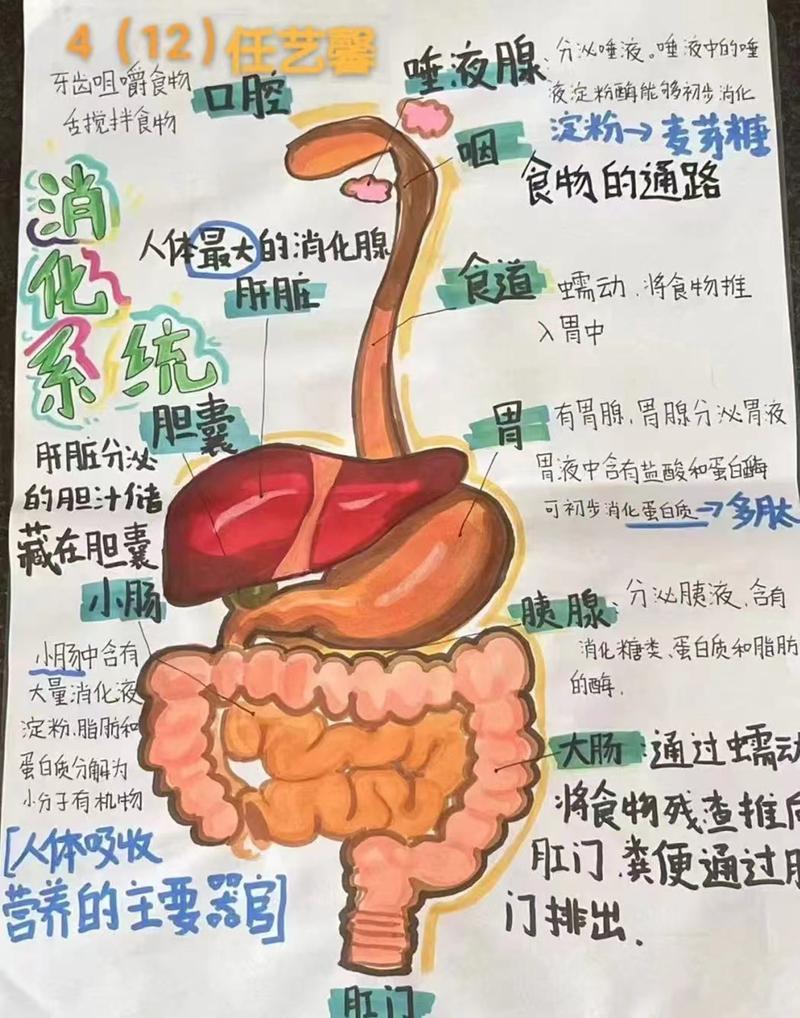 4（12）任艺馨
牙齿咀嚼食物
舌搅拌食物
口腔
唾液腺
分泌唾液。唾液中的唾
液淀粉酶能够初步消化
淀粉→麦芽糖
咽
食物的通路
消化系统
人体最大的消化腺
肝脏
食道
蠕动，将食物推
入胃中
胆囊
肝脏分泌
的胆汁储
藏在胆囊
胃
有胃腺，胃腺分泌胃液
胃液中含有盐酸和蛋白酶
可初步消化蛋白质→多肽
小肠
小肠中含有
大量消化液
淀粉、脂肪和
蛋白质分解为
小分子有机物
[人体吸收
营养的主要器官]
胰腺：分泌胰液，含有
消化糖类、蛋白质和脂肪
的酶.
大肠：通过蠕动
将食物残查推向
肛门，粪便通过肛
门排出.
肛门